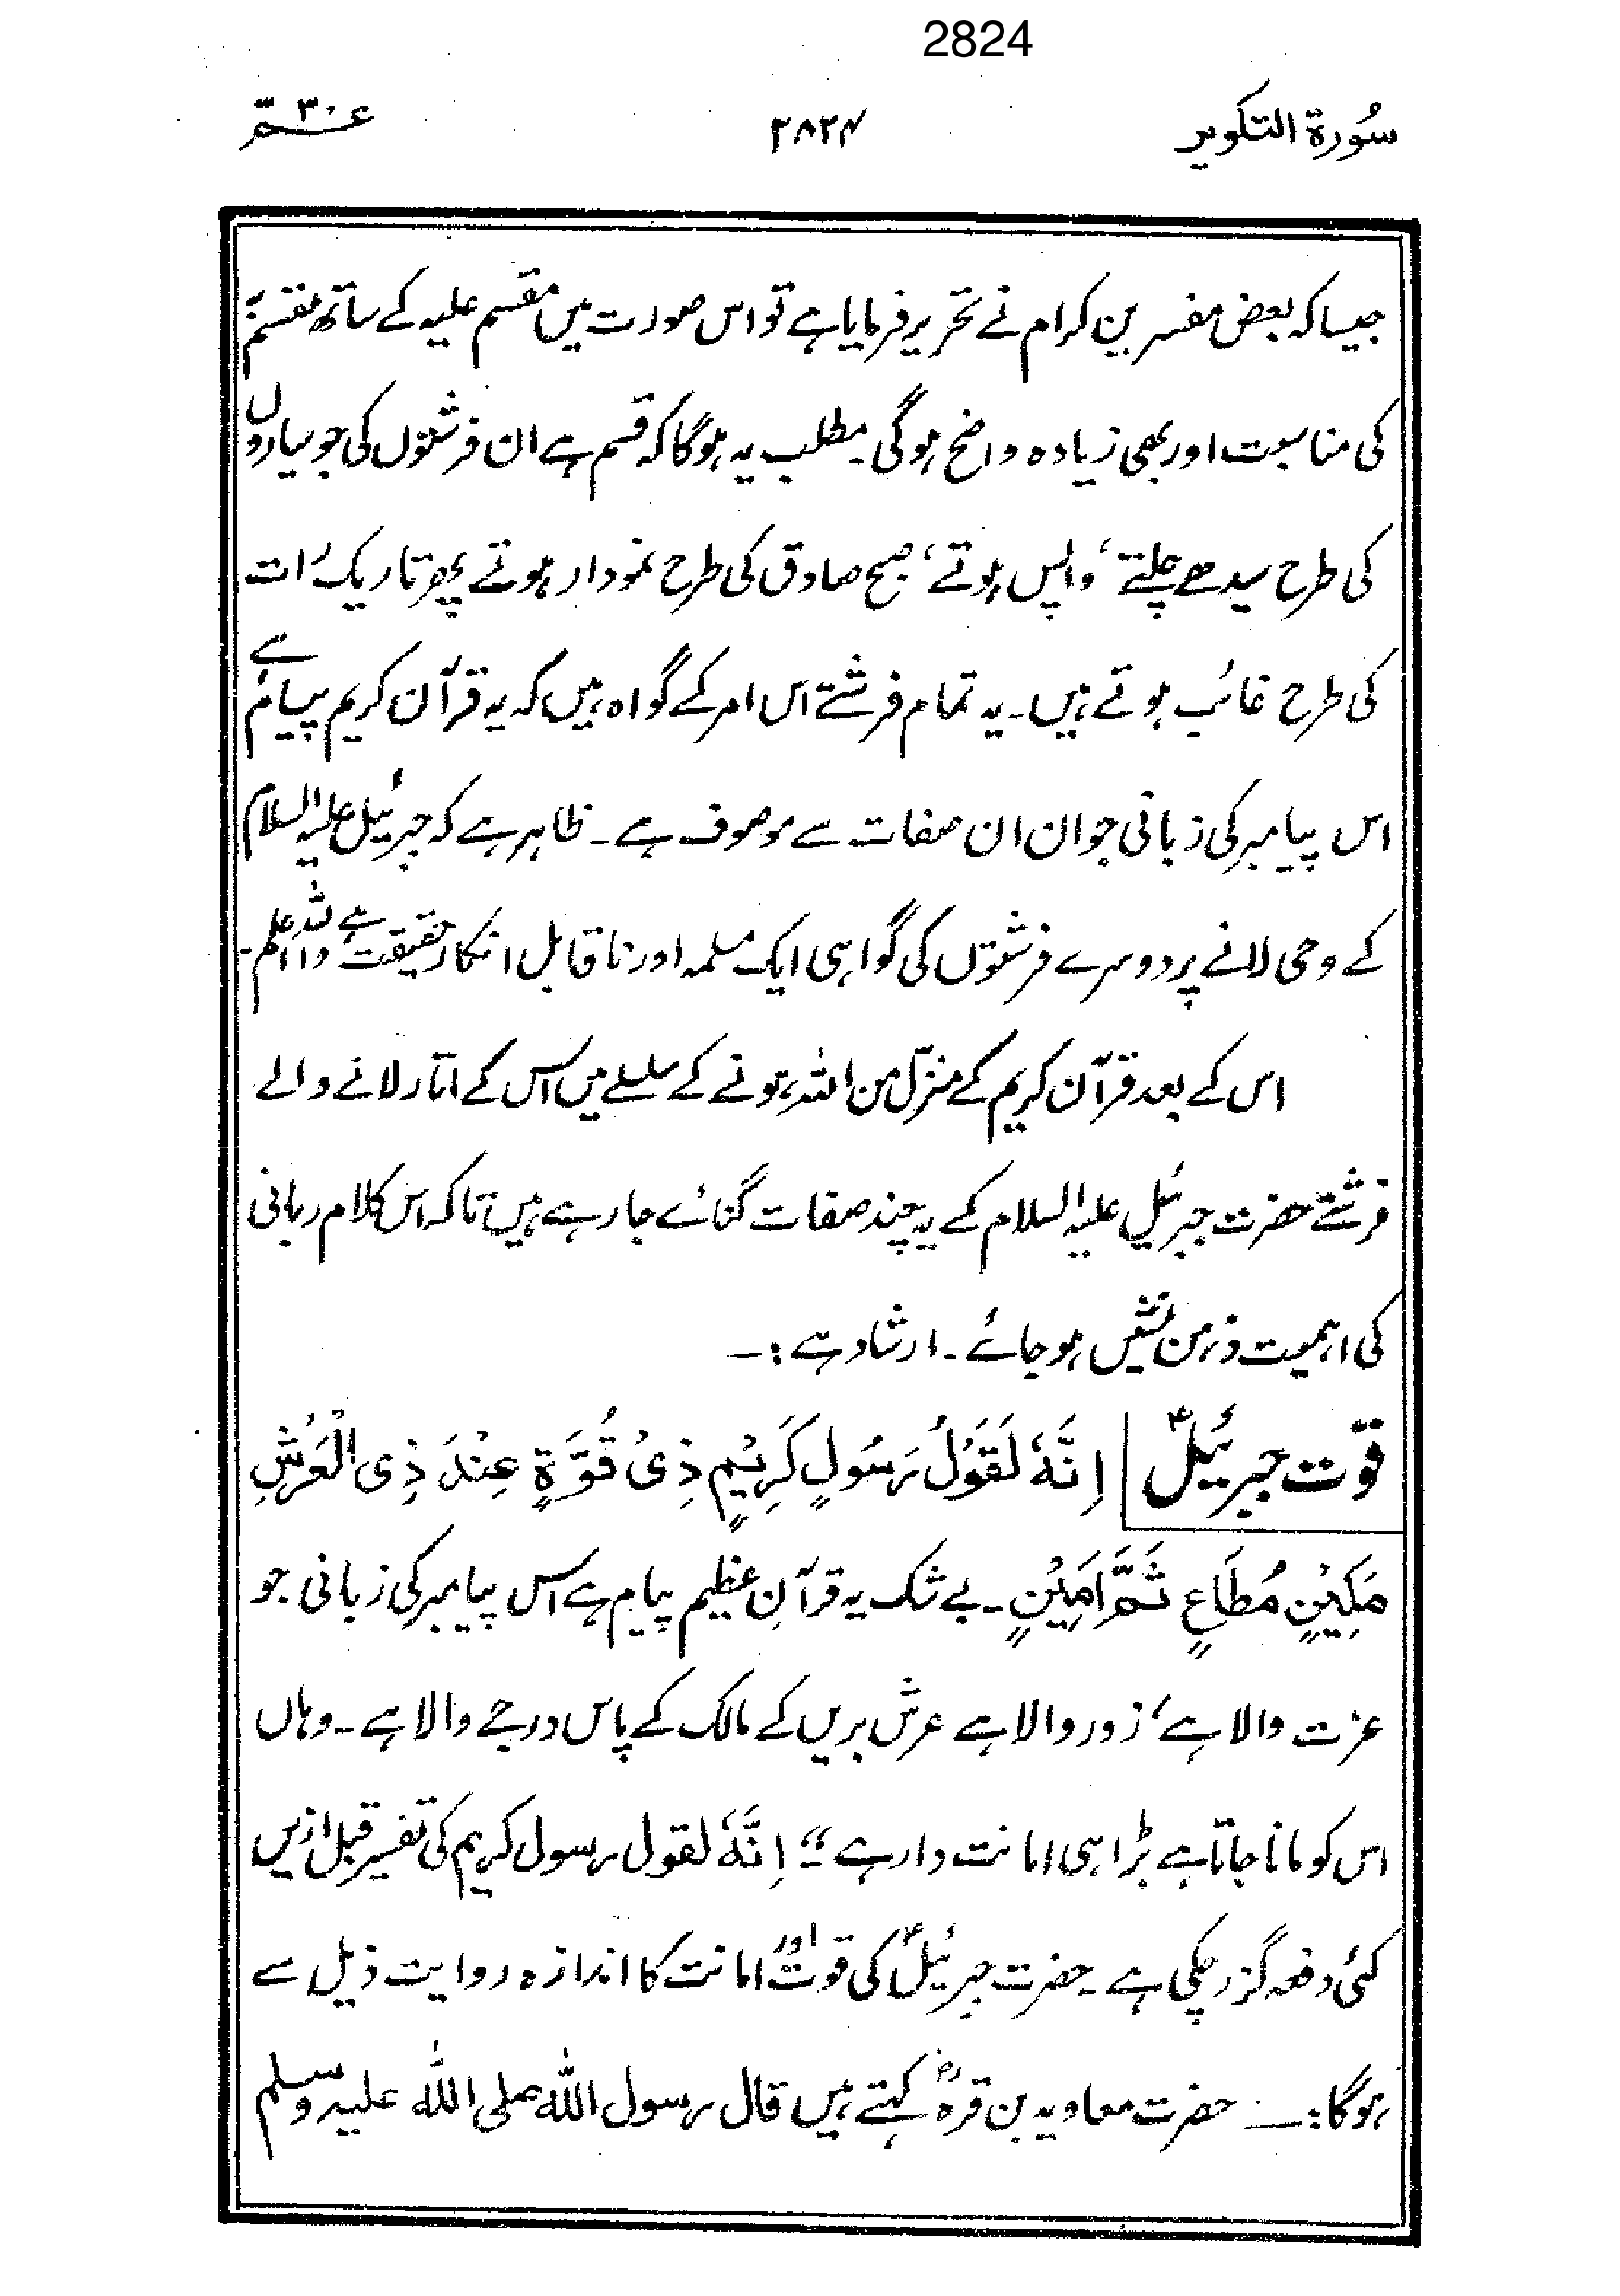 2824
سُورة التکویر ۲۸۲۴ عمّ ۳۰
جیسا کہ بعض مفسرین کرام نے تحریر فرمایا ہے تو اس صورت میں مقسم علیہ کے ساتھ مقسم بہ
کی مناسبت اور بھی زیادہ واضح ہوگی۔ مطلب یہ ہوگا کہ قسم ہے ان فرشتوں کی جو سیاروں
کی طرح سیدھے چلتے، واپس ہوتے، صبح صادق کی طرح نمودار ہوتے پھر تاریک رات
کی طرح غائب ہوتے ہیں۔ یہ تمام فرشتے اس امر کے گواہ ہیں کہ یہ قرآن کریم پیام ہے
اس پیامبر کی زبانی جو ان ان صفات سے موصوف ہے۔ ظاہر ہے کہ جبرئیل علیہ السلام
کے وحی لانے پر دوسرے فرشتوں کی گواہی ایک مسلمہ اور ناقابل انکار حقیقت ہے واللہ اعلم۔
اس کے بعد قرآن کریم کے منزّل من اللہ ہونے کے سلسلے میں اس کے اتار لانے والے
فرشتے حضرت جبرئیل علیہ السلام کے یہ چند صفات گنائے جا رہے ہیں تاکہ اس کلام ربانی
کی اہمیت ذہن نشین ہو جائے۔ ارشاد ہے :۔
قوّت جبرئیلؑ اِنَّهٗ لَقَوْلُ رَسُوْلٍ كَرِيْمٍ ذِیْ قُوَّةٍ عِنْدَ ذِی الْعَرْشِ
مَكِيْنٍ مُطَاعٍ ثَمَّ اَمِيْنٍ۔ بے شک یہ قرآنِ عظیم پیام ہے اس پیامبر کی زبانی جو
عزت والا ہے، زور والا ہے عرش بریں کے مالک کے پاس درجے والا ہے۔ وہاں
اس کو مانا جاتا ہے بڑا ہی امانت دار ہے“۔ اِنَّهٗ لقول رسول کریم کی تفسیر قبل ازیں
کئی دفعہ گزر چکی ہے۔ حضرت جبرئیلؑ کی قوت اور امانت کا اندازہ روایت ذیل سے
ہوگا :۔ حضرت معاویہ بن قرہؓ کہتے ہیں قال رسول اللّٰہ صلی اللّٰہ علیہ وسلم